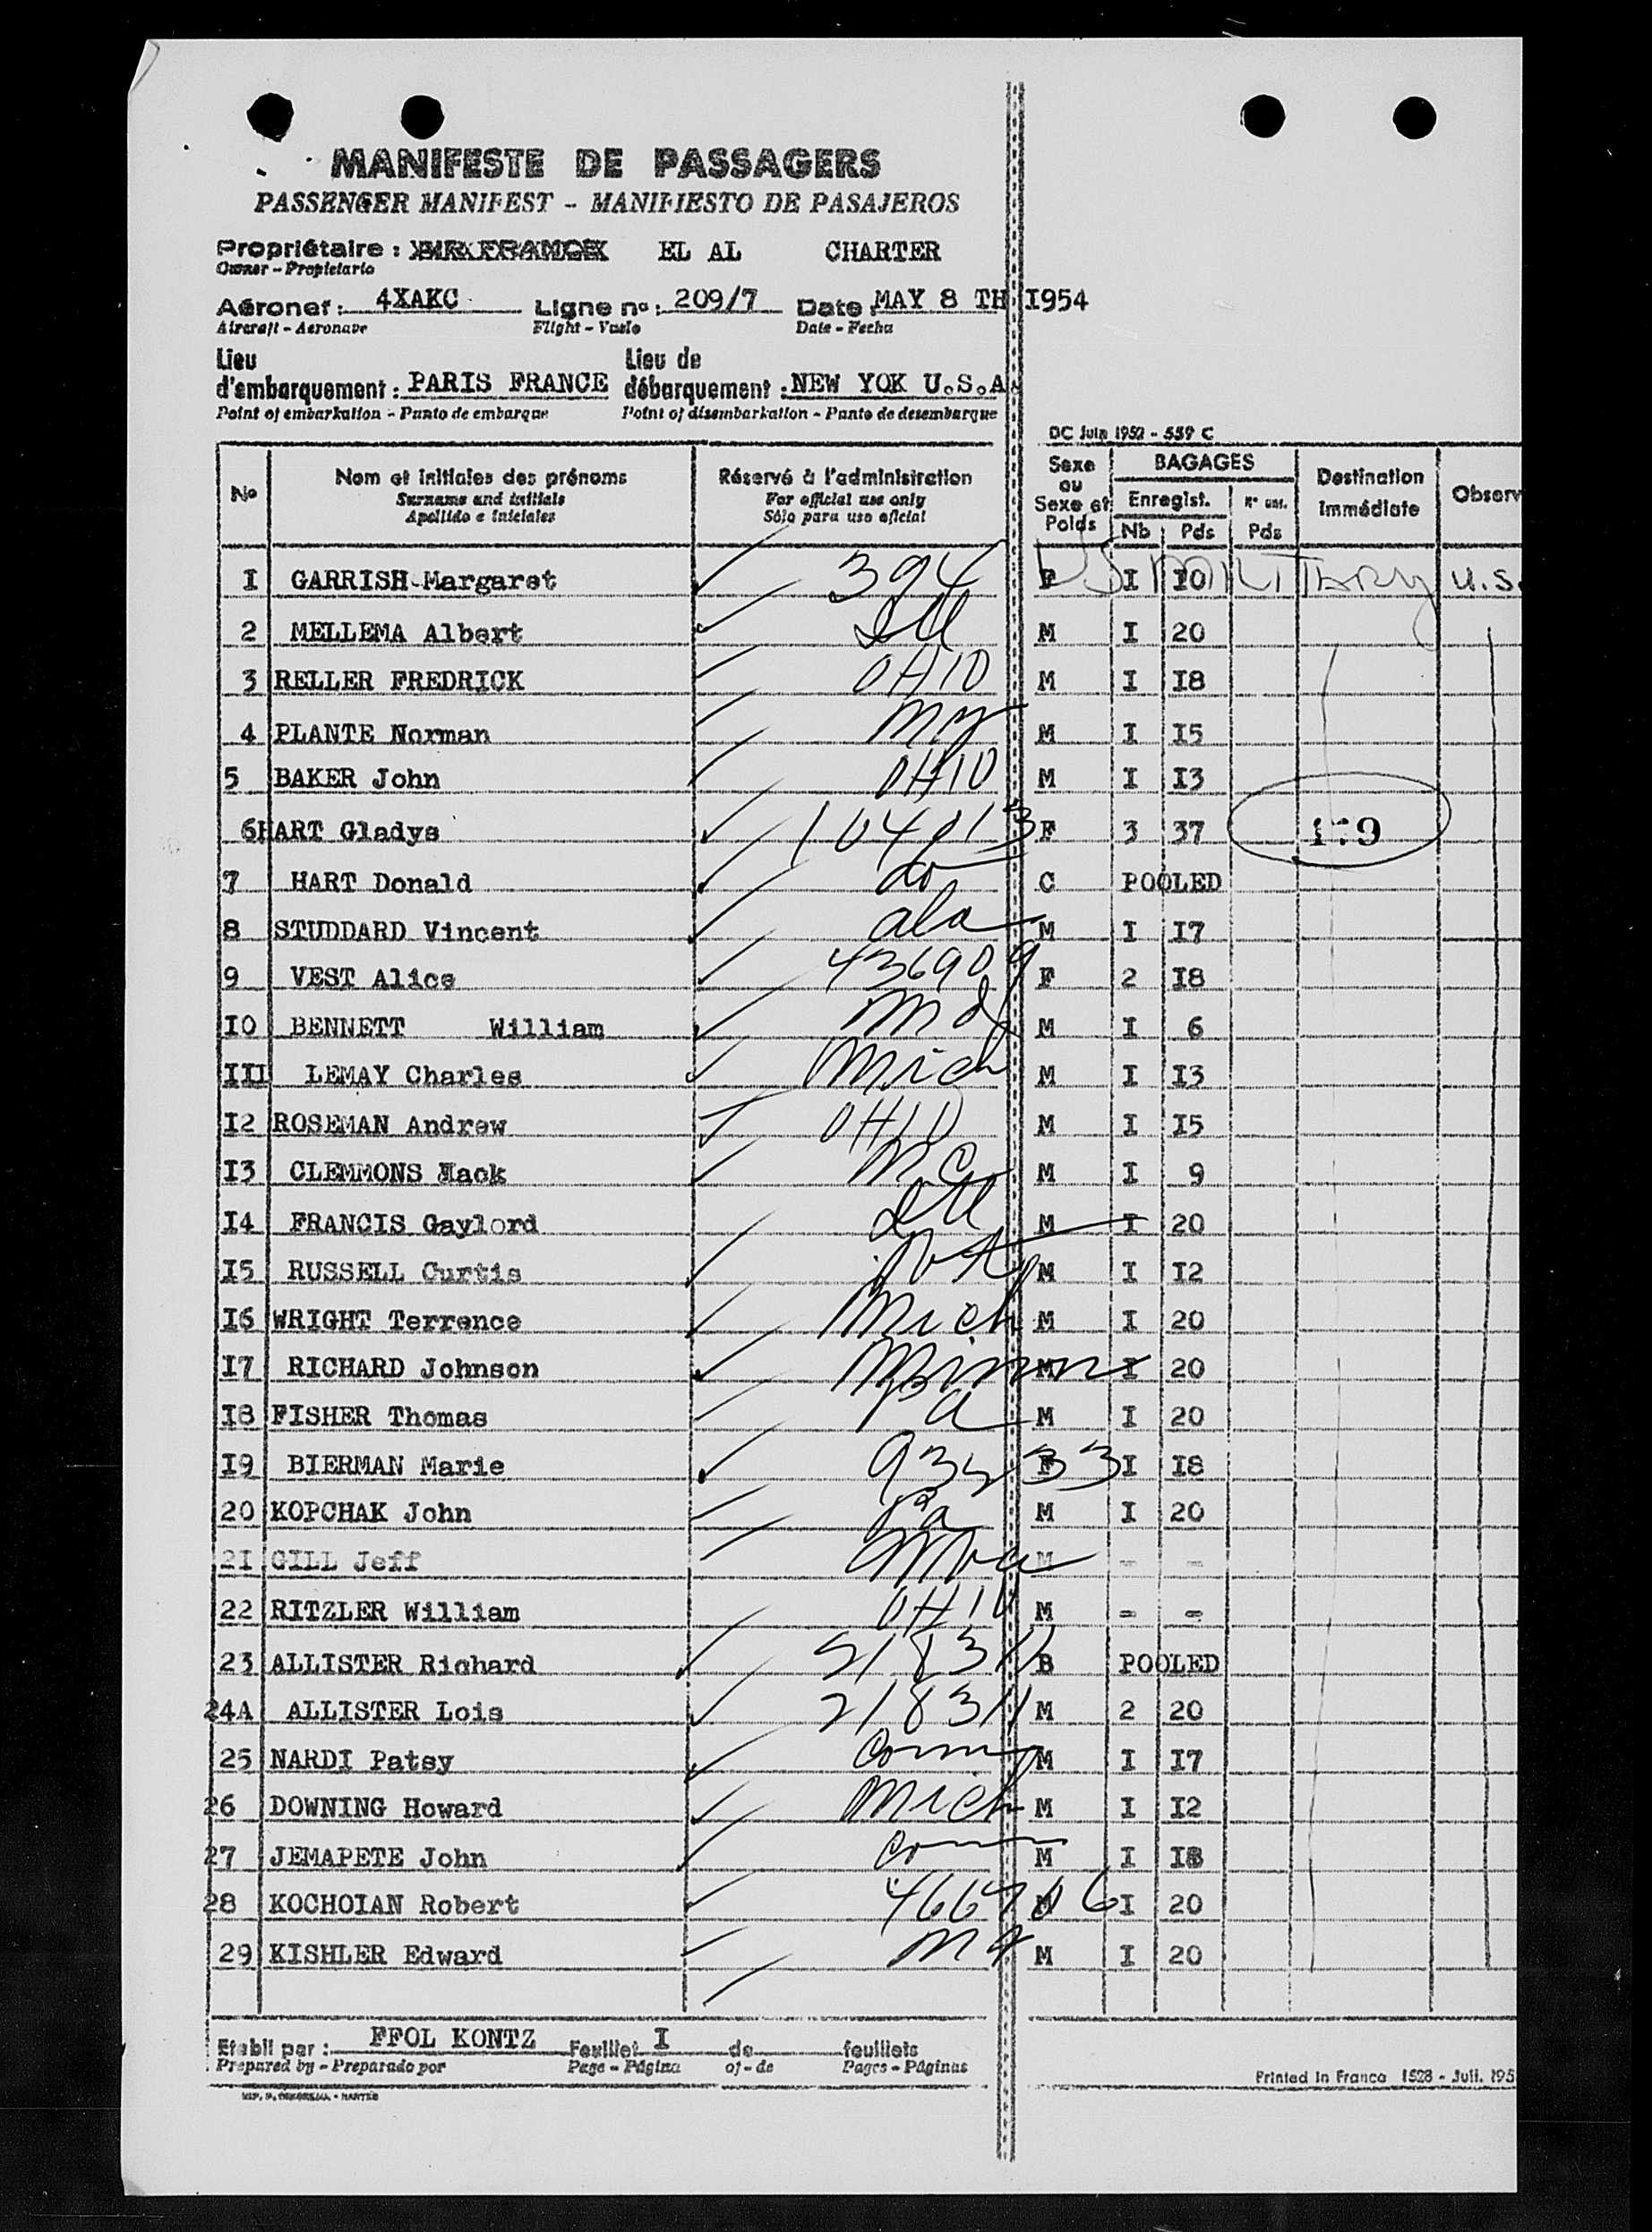 MANIFESTE DE PASSAGERS
PASSENGER MANIFEST - MANIFIESTO DE PASAJEROS
Propriétaire : AIR FRANCE EL AL CHARTER
Owner - Propietario
Aéronef : 4XAKC Ligne no : 209/7 Date : MAY 8 TH I954
Aircraft - Aeronave Flight - Vuelo Date - Fecha
Lieu Lieu de
d'embarquement : PARIS FRANCE débarquement : NEW YOK U.S.A.
Point of embarkation - Punto de embarque Point of disembarkation - Punto de desembarque
DC Juin 1952 - 559 C
No Nom et initiales des prénoms Réservé à l'administration Sexe ou Sexe et Poids BAGAGES Destination Immédiate Observ
Surname and initials For official use only Enregist.
Apellido e iniciales Sólo para uso oficial Nb Pds Pds
I GARRISH Margaret 394 F I I0 US MILITARY U.S.
2 MELLEMA Albert Ill M I 20
3 RELLER FREDRICK OHIO M I I8
4 PLANTE Norman NY M I I5
5 BAKER John OHIO M I I3
6HART Gladys 104013 F 3 37 179
7 HART Donald do C POOLED
8 STUDDARD Vincent ala M I I7
9 VEST Alice 436909 F 2 I8
I0 BENNETT William Md M I 6
III LEMAY Charles Mich M I I3
I2 ROSEMAN Andrew OHIO M I I5
I3 CLEMMONS Mack NC M I 9
I4 FRANCIS Gaylord Ill M I 20
I5 RUSSELL Curtis M I I2
I6 WRIGHT Terrence Mich M I 20
I7 RICHARD Johnson Minn M I 20
I8 FISHER Thomas Pa M I 20
I9 BIERMAN Marie F I I8
20 KOPCHAK John Pa M I 20
2I GILL Jeff M - -
22 RITZLER William OHIO M - -
23 ALLISTER Richard 218311 B POOLED
24A ALLISTER Lois 218311 M 2 20
25 NARDI Patsy Conn M I I7
26 DOWNING Howard Mich M I I2
27 JEMAPETE John Conn M I I8
28 KOCHOIAN Robert M I 20
29 KISHLER Edward NY M I 20
Etabli par : FFOL KONTZ Feuillet I de feuillets
Prepared by - Preparado por Page - Página of - de Pages - Páginas
Printed in France 1528 - Juil. 195